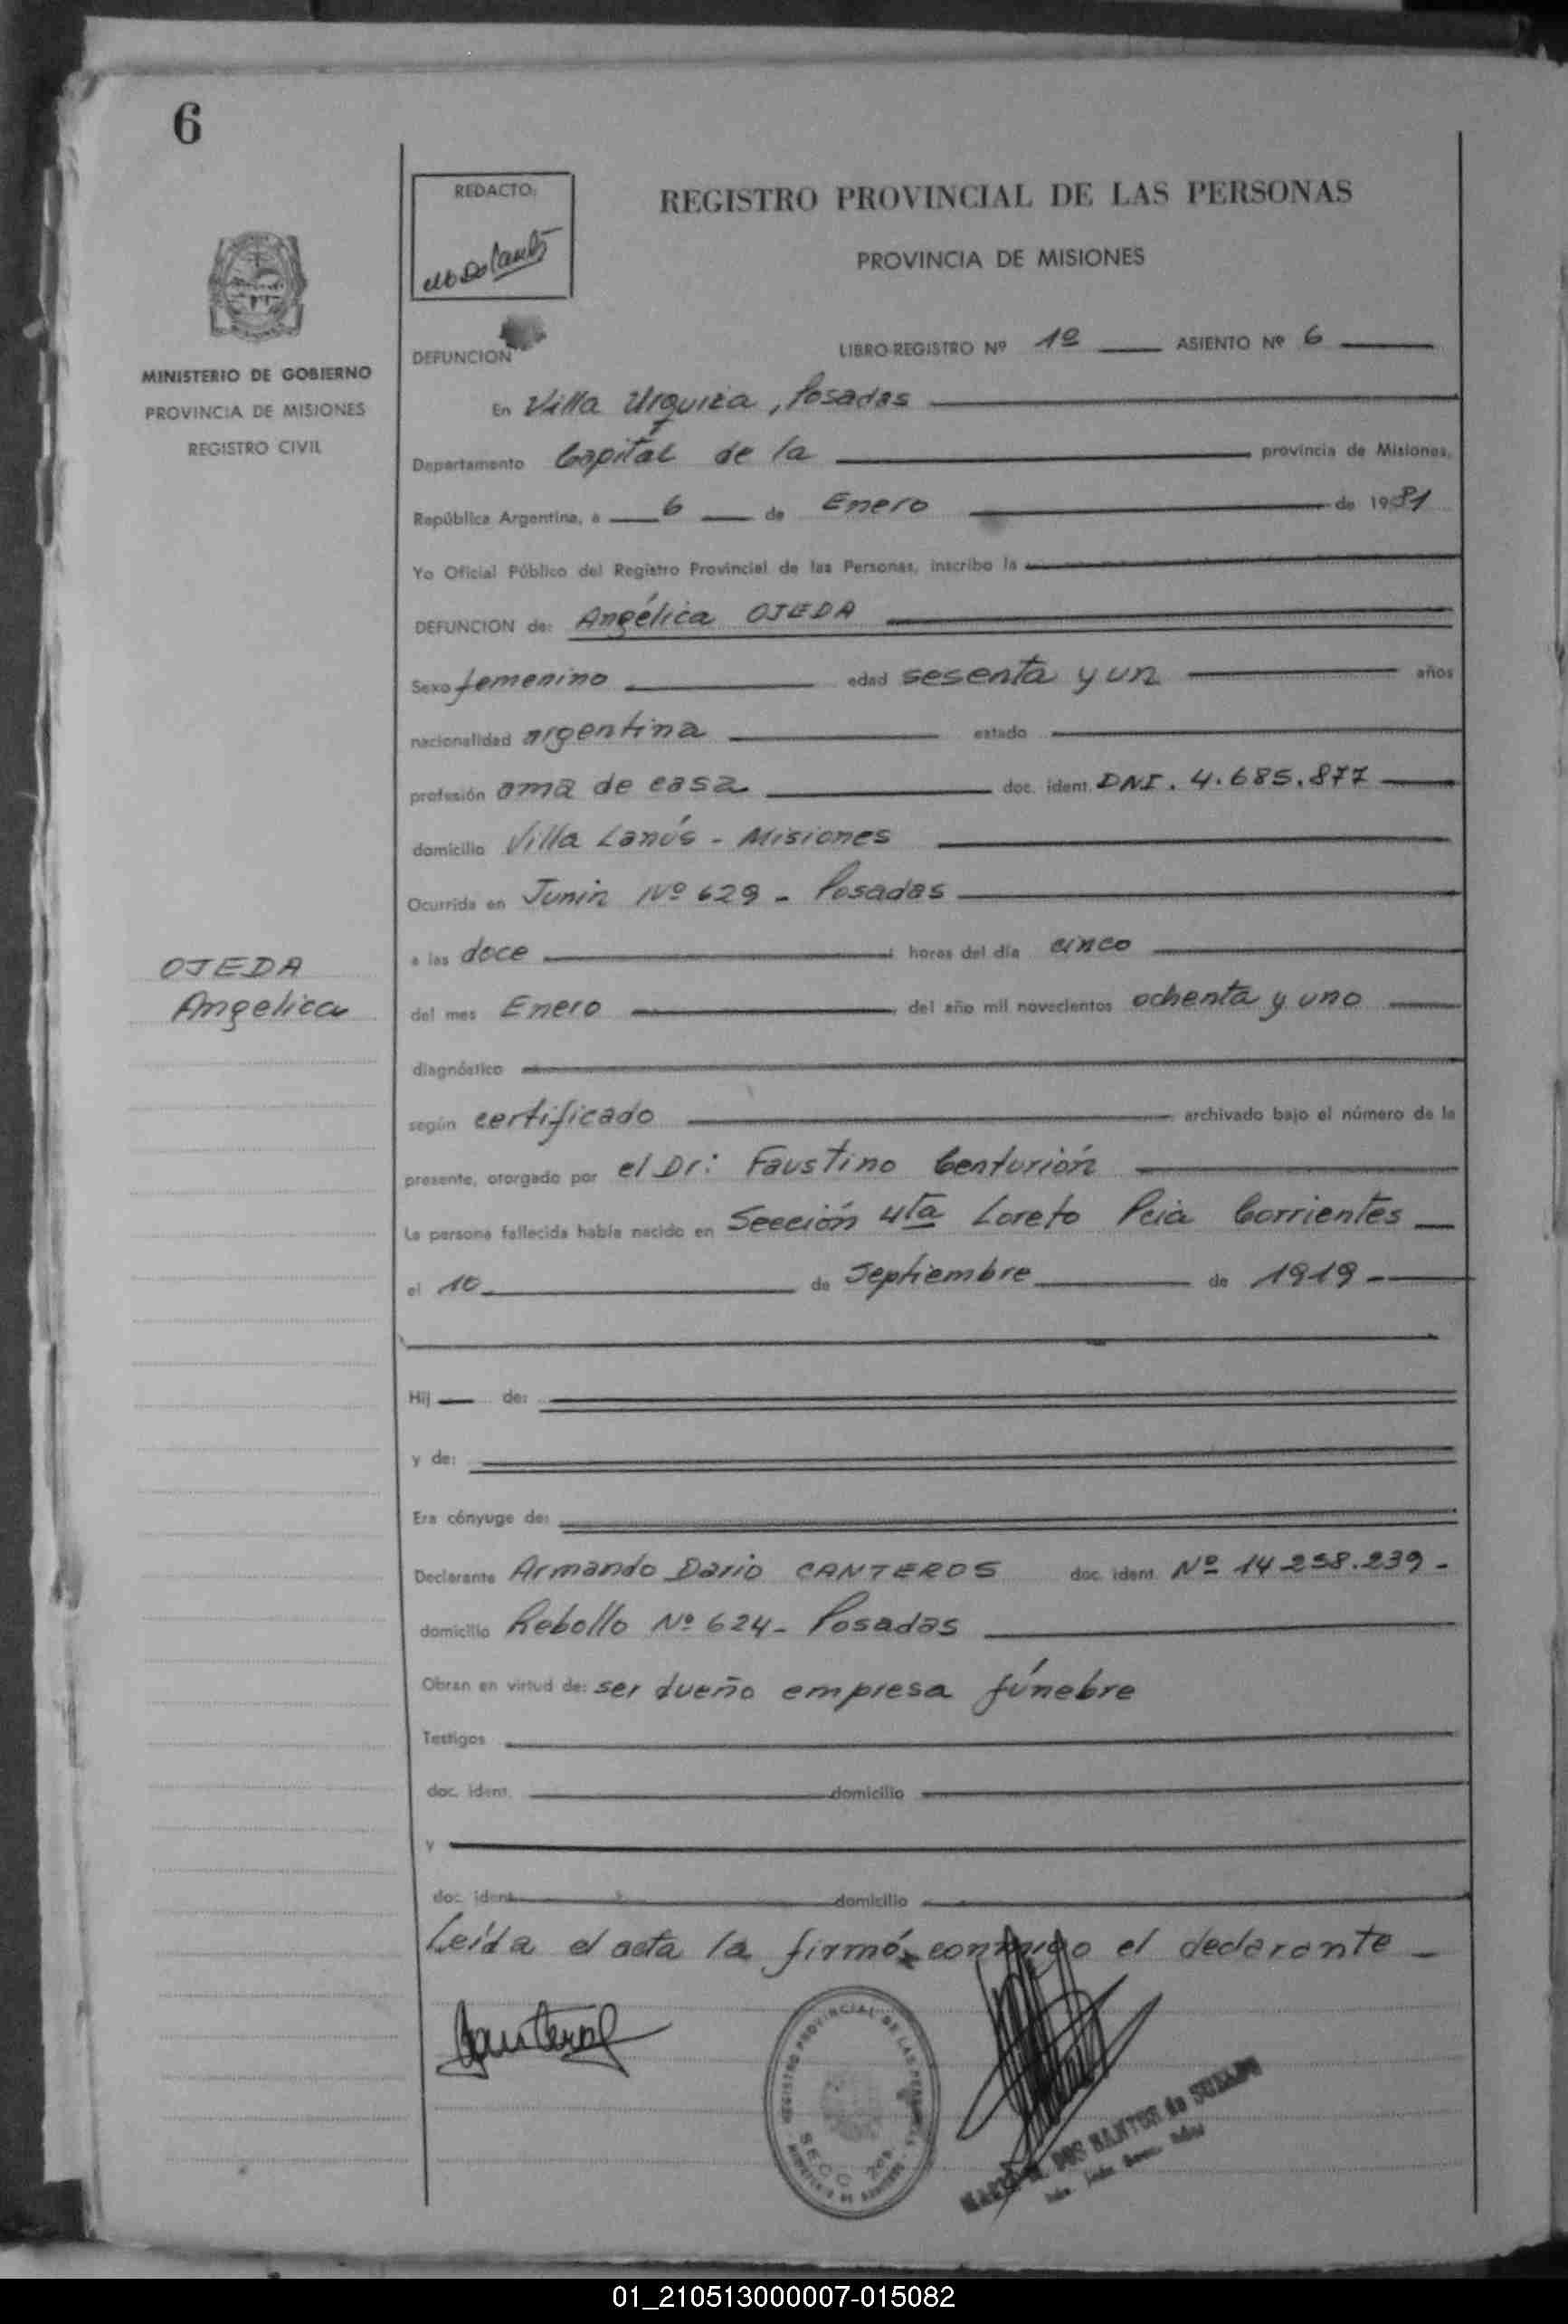 6
REDACTO:
REGISTRO PROVINCIAL DE LAS PERSONAS
PROVINCIA DE MISIONES
MINISTERIO DE GOBIERNO
PROVINCIA DE MISIONES
REGISTRO CIVIL
DEFUNCION LIBRO-REGISTRO Nº 1º ASIENTO Nº 6
En Villa Urquiza, Posadas
Departamento Capital de la provincia de Misiones,
República Argentina, a 6 de Enero de 1981
Yo Oficial Público del Registro Provincial de las Personas, inscribo la
DEFUNCION de: Angélica OJEDA
Sexo femenino edad sesenta y un años
nacionalidad argentina estado
profesión ama de casa doc. ident. DNI. 4.685.877
domicilio Villa Lanús - Misiones
Ocurrida en Junin Nº 629 - Posadas
a las doce horas del día cinco
OJEDA
Angelica
del mes Enero del año mil novecientos ochenta y uno
diagnóstico
según certificado archivado bajo el número de la
presente, otorgado por el Dr: Faustino Centurión
La persona fallecida había nacido en Sección 4ta Loreto Pcia Corrientes
el 10 de Septiembre de 1919 -
Hij de:
y de:
Era cónyuge de:
Declarante Armando Dario CANTEROS doc. ident. Nº 14 258.239 -
domicilio Rebollo Nº 624 - Posadas
Obran en virtud de: ser dueño empresa fúnebre
Testigos
doc. ident. domicilio
y
doc. ident. domicilio
Leída el acta la firmó conmigo el declarante -
Canteros
REGISTRO PROVINCIAL DE LAS PERSONAS
SECC. 2da.
DOS SANTOS de
01_210513000007-015082